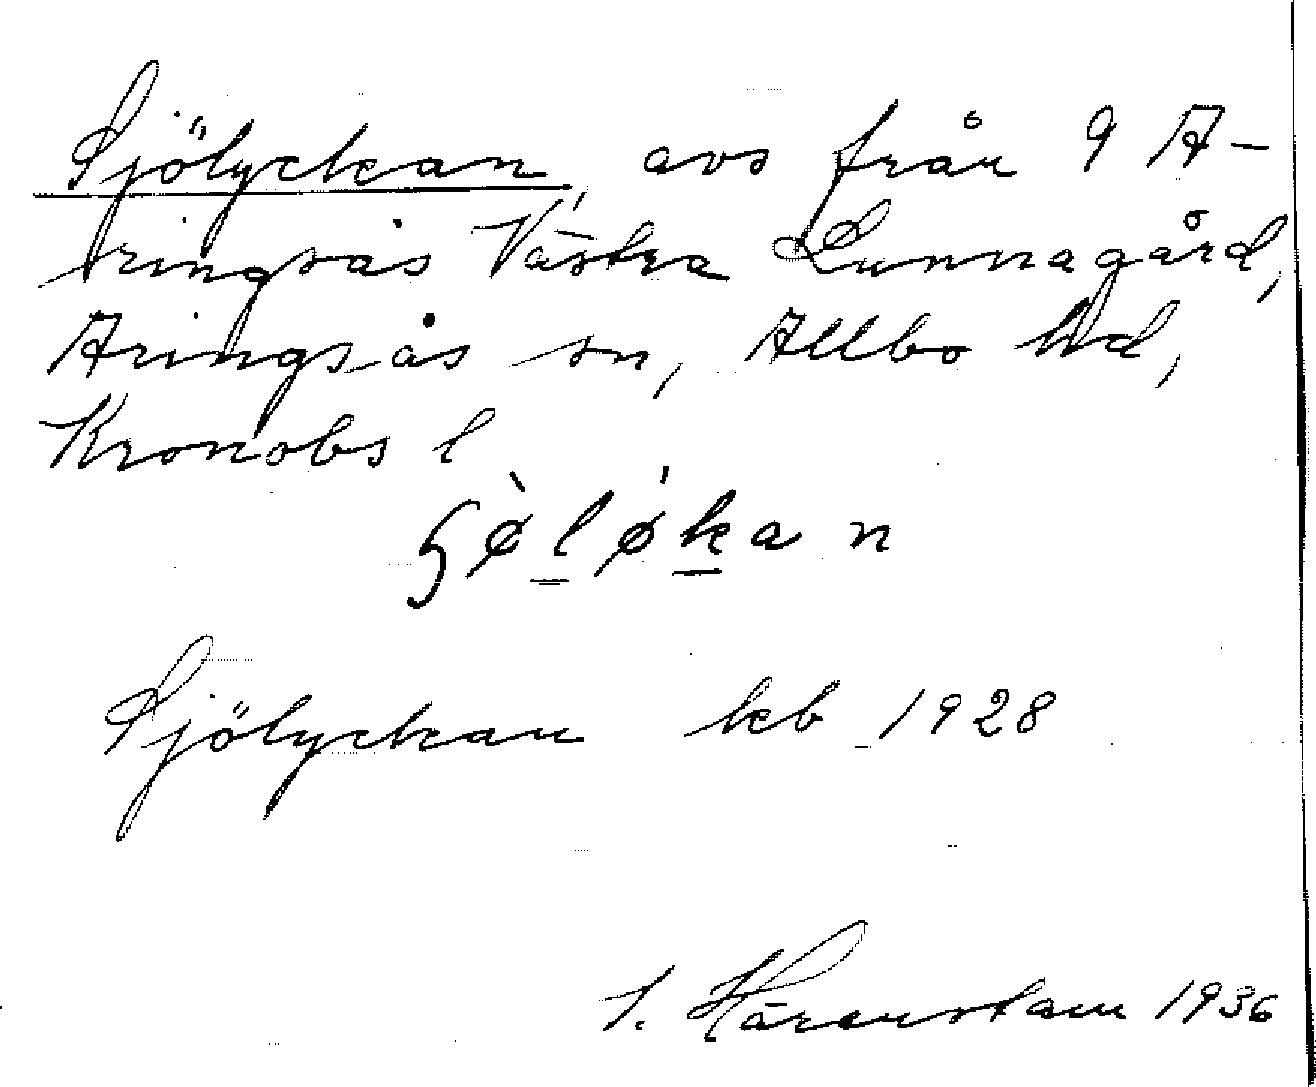 Sjölyckan, avs från 9 A-
ringsås Västra Lunnagård,
Aringsås sn, Allbo hd,
Kronobs l
ɧø̀lǿkan
Sjölyckan kb 1928
S. Härenstam 1936